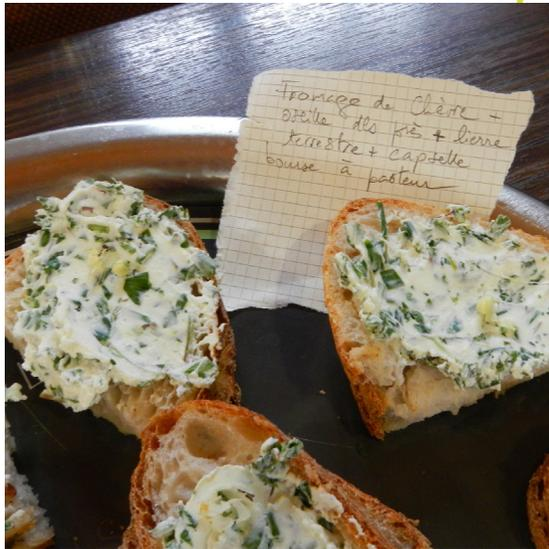 Fromage de Chèvre +
oseille des prés + lierre
terrestre + capselle
bourse à pasteur